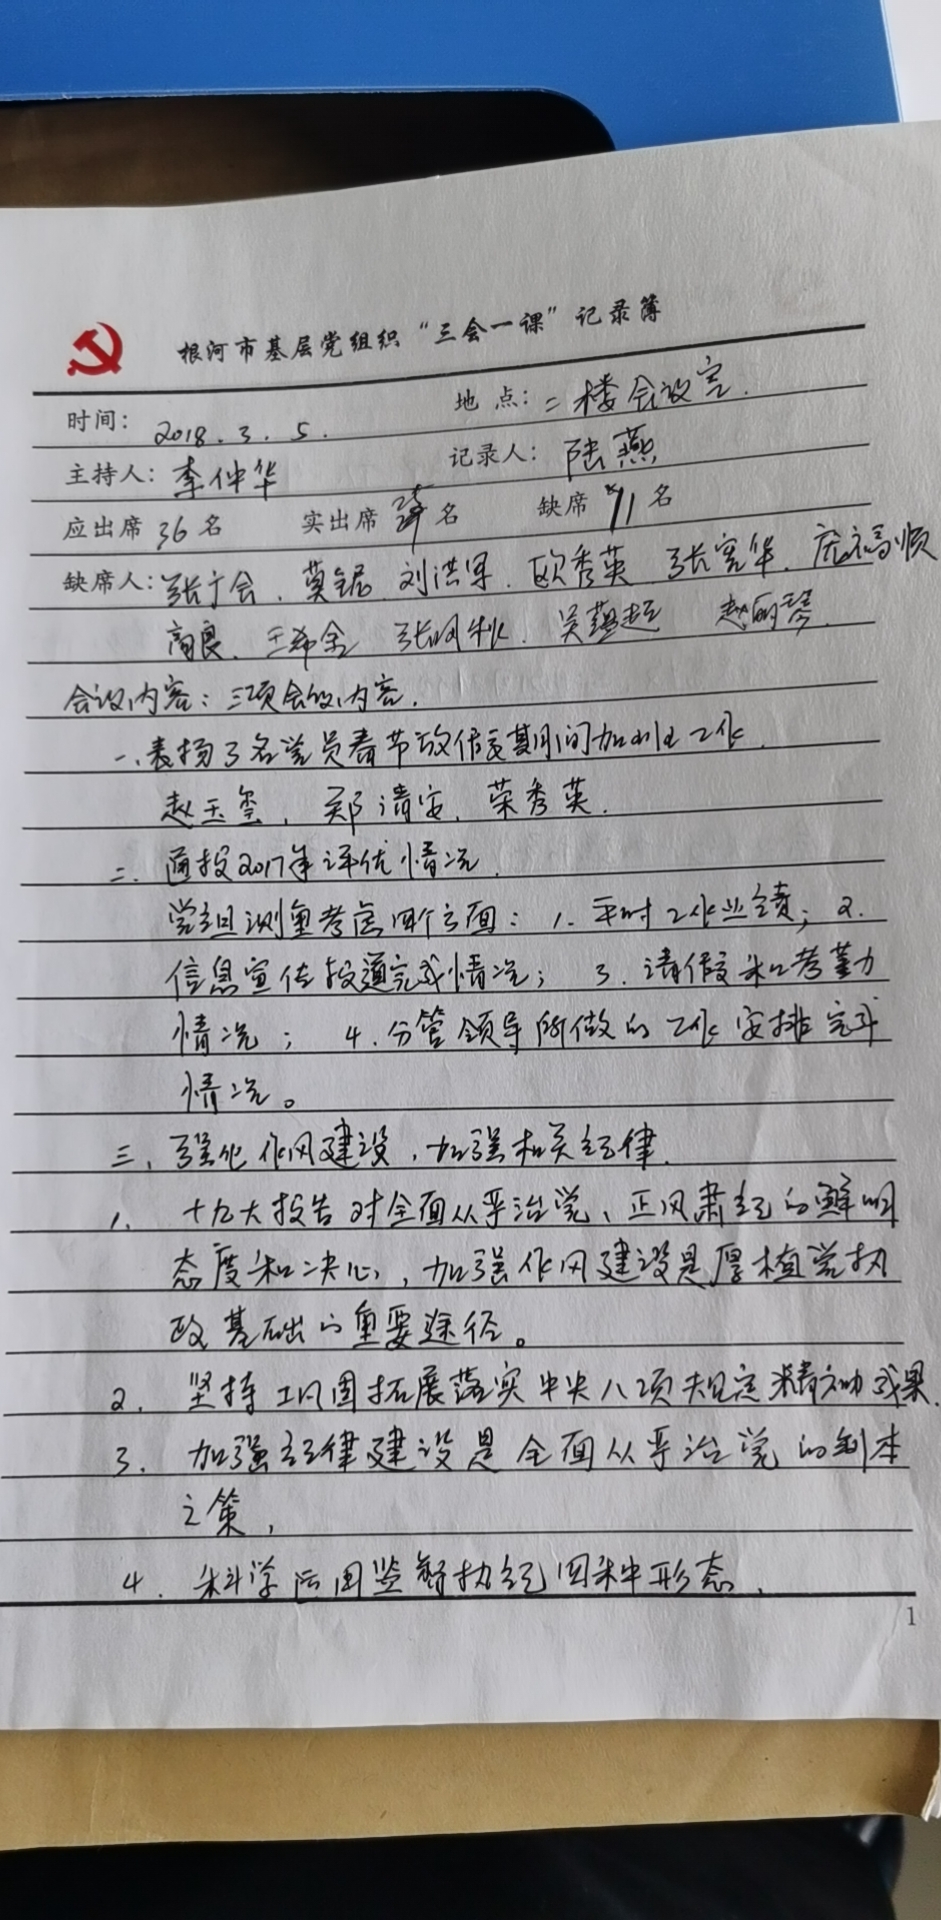 根河市基层党组织“三会一课”记录簿
时间：2018.3.5. 地点：二楼会议室.
主持人：李仲华 记录人：陆燕
应出席36名 实出席 名 缺席11名
缺席人：张广会、莫锯、刘洪军、欧秀英 张宪华、庞福顺
高良、王希全 张明秋、吴蕴超 赵丽琴.
会议内容：三项会议内容.
一、表扬3名党员春节放假期间加班工作.
赵玉玺, 郑清安, 荣秀英.
二、通报2017年评优情况.
党组测重考虑四个方面：1.平时工作业绩；2.
信息宣传报道完成情况；3.请假和考勤
情况；4.分管领导所做的工作安排完成
情况。
三、强化作风建设,加强相关纪律.
1. 十九大报告对全面从严治党、正风肃纪的鲜明
态度和决心,加强作风建设是厚植党执
政基础的重要途径。
2. 坚持巩固拓展落实中央八项规定精神成果.
3. 加强纪律建设是全面从严治党的制本
之策,
4. 科学运用监督执纪四种形态.
1